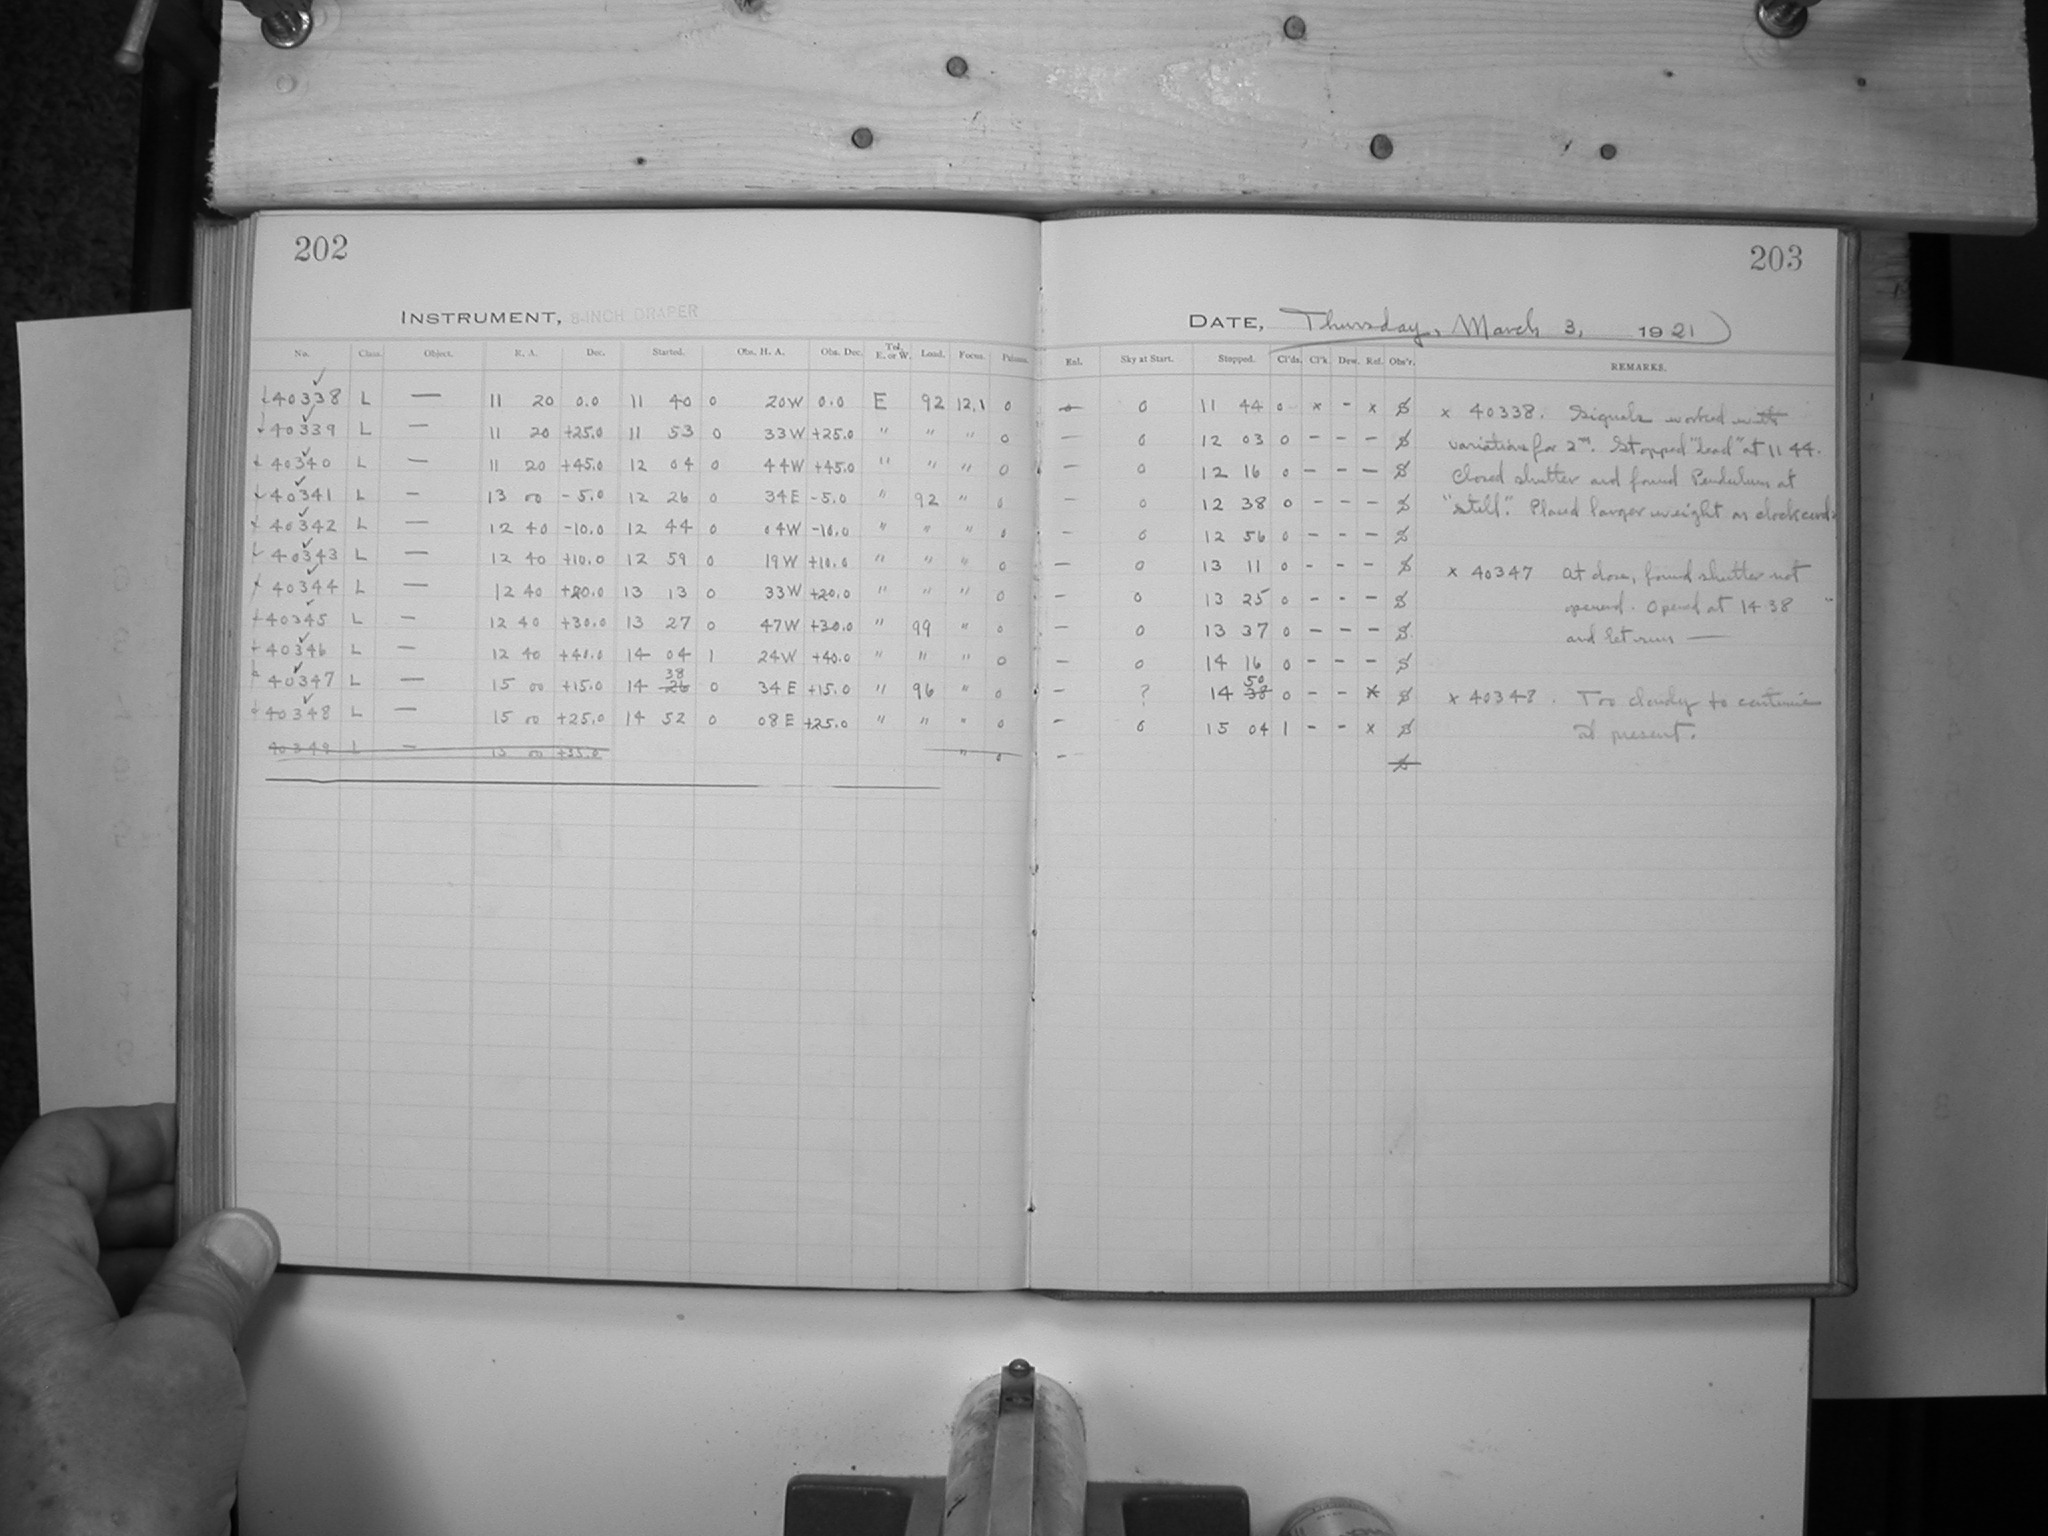 202
203
INSTRUMENT, 8-INCH DRAPER
DATE, Thursday, March 3, 1921
No. Class. Object. R. A. Dec. Started. Obs. H. A. Obs. Dec. Tel. E. or W. Load. Focus. Enl. Sky at Start. Stopped. Cl'ds. Cl'k. Dew. Ref. Obs'r. REMARKS.
40338 L — 11 20 0.0 11 40 0 20W 0.0 E 92 12.1 0 0 11 44 0 x - x S x 40338. Signals worked with
40339 L — 11 20 +25.0 11 53 0 33W +25.0 " " " 0 — 0 12 03 0 - - - S variations for 2m. Stopped "Lead" at 11 44.
40340 L — 11 20 +45.0 12 04 0 44W +45.0 " " " 0 — 0 12 16 0 - - - S Closed shutter and found Pendulum at
40341 L — 13 00 -5.0 12 26 0 34E -5.0 " 92 " 0 - 0 12 38 0 - - - S "still". Placed larger weight on clock cord.
40342 L — 12 40 -10.0 12 44 0 04W -10.0 " " " 0 - 0 12 56 0 - - - S
40343 L — 12 40 +10.0 12 59 0 19W +10.0 " " " 0 - 0 13 11 0 - - - S x 40347 At close, found shutter not
40344 L — 12 40 +20.0 13 13 0 33W +20.0 " " " 0 - 0 13 25 0 - - - S opened. Opened at 14 38
40345 L — 12 40 +30.0 13 27 0 47W +30.0 " 99 " 0 - 0 13 37 0 - - - S and let run —
40346 L — 12 40 +40.0 14 04 1 24W +40.0 " " " 0 - 0 14 16 0 - - - S
38
50
40347 L — 15 00 +15.0 14 26 0 34E +15.0 " 96 " 0 - ? 14 38 0 - - x S x 40348. Too cloudy to continue
40348 L — 15 00 +25.0 14 52 0 08E +25.0 " " " 0 - 0 15 04 1 - - x S at present.
40349 L — 15 00 +35.0 " 0 - S